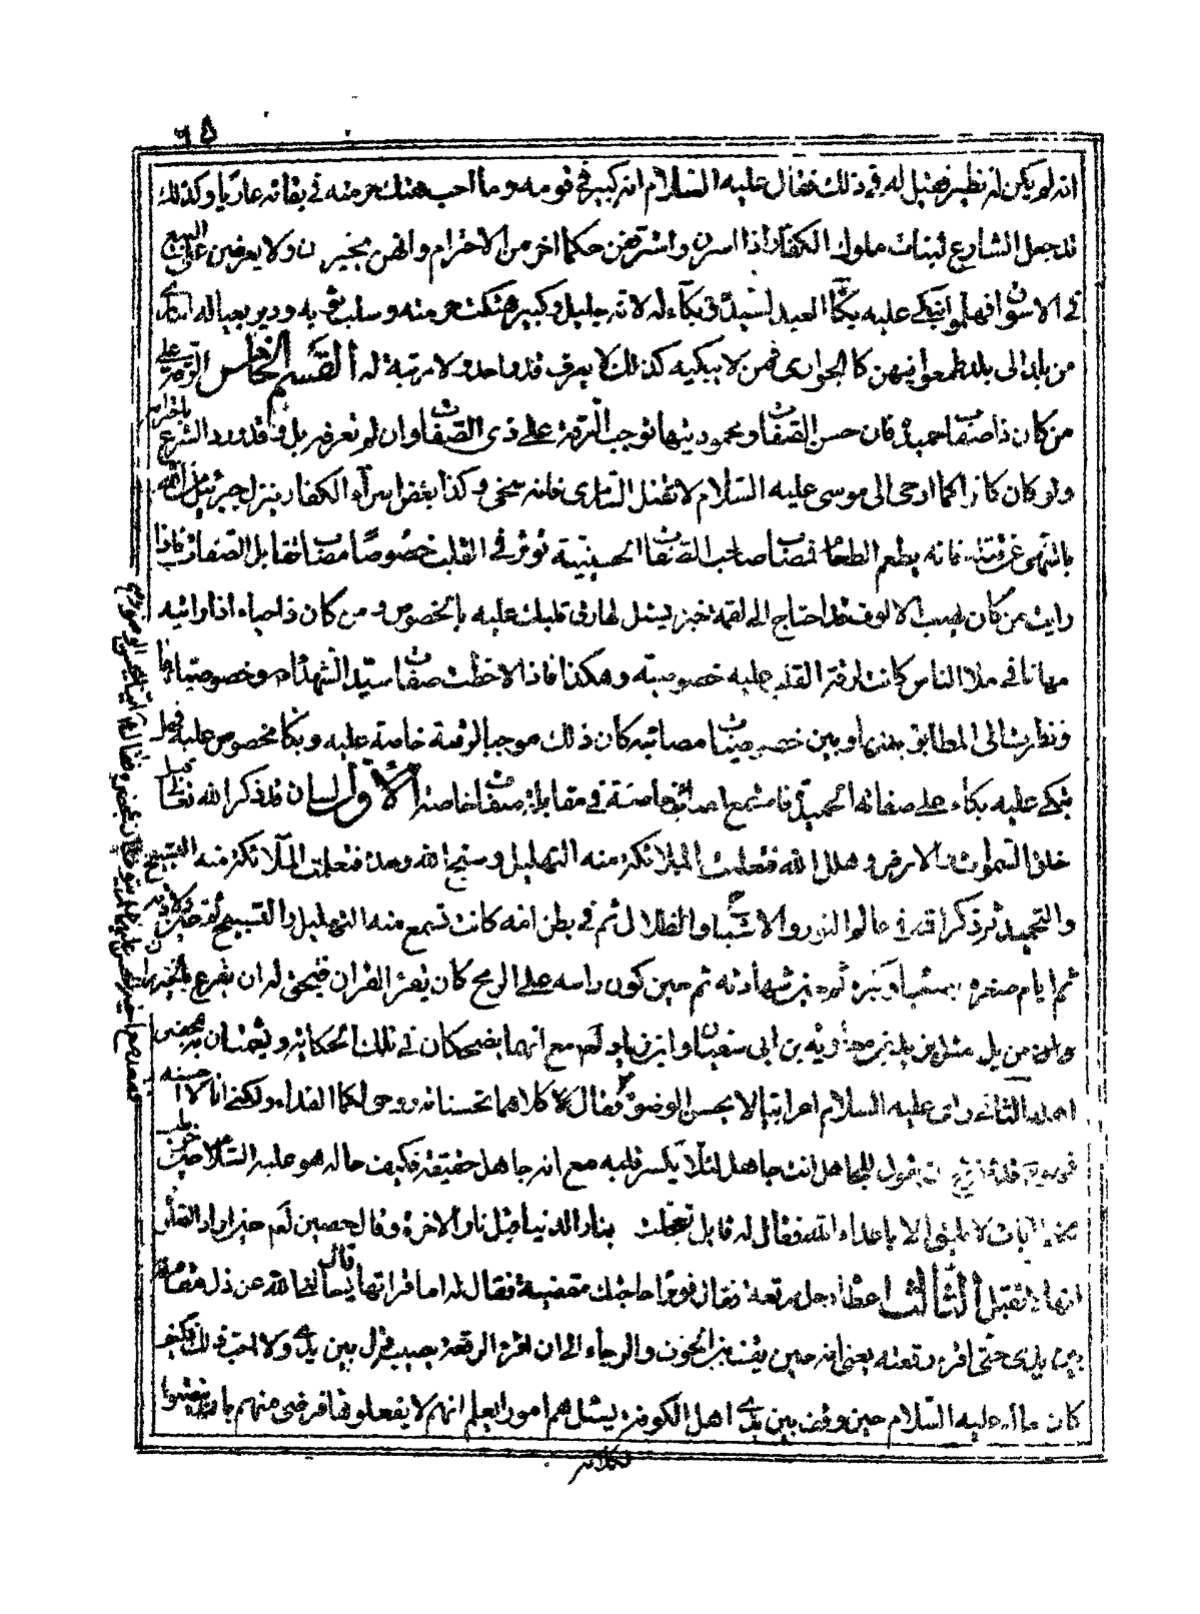 ٦٥
انه لم يكن له نظير فقيل له في ذلك فقال عليه السلام انه كبير في قومه وما احب هتك حرمته في بقائه عاريا وكذلك
قد جعل الشارع لبنات ملوك الكفار اذا اسرن واسترققن حكما اخر من الاحترام وانهن يخيرن ولا يعرضن على البيع
في الاسواق فهلموا نبكي عليه بكاء العبد لسيده بكاء له لانه جليل وكبير هتكت حرمته وسلب ثوبه ودير بعياله اسارى
من بلد الى بلد طمعوا فيهن كالجواري فمن لا يبكيه كذلك لا يعرف قدر احد ولا مرتبة له القسم الخامس الرقة على
من كان ذا صفات حميدة فان حسن الصفات ومحموديتها توجب الرقة على ذي الصفات وان لم تعرفه بل وقد ورد الشرع باحترامه
ولو كان كافرا كما اوحى الى موسى عليه السلام لا تقتل السامري فانه سخي وكذا بعض اسراء الكفار ينزل جبرئيل من الله
بالنهي عن قتله فانه يطعم الطعام فمصاب صاحب الصفات الحسنة تؤثر في القلب خصوصا مصائب تقابل الصفات فاذا
رايت من كان يهب الالوف قد احتاج الى لقمة خبز يسئل لها رق قلبك عليه بالخصوص ومن كان ذا حياء اذا رايته
مهانا في ملا الناس كانت لرقة القلب عليه خصوصية وهكذا فاذا لاحظت صفات سيد الشهداء وخصوصياتها
ونظرت الى المطابق بينها وبين خصوصيات مصائبه كان ذلك موجبا لرقة خاصة عليه وبكاء مخصوص عليه فهلموا
نبكي عليه بكاء على صفاته الحميدة فاستمع صفات خاصة في مقابلة صفات خاصة الاول لسان قد ذكر الله تعالى قبل
خلق السموات والارض وهلل الله فتعلمت الملائكة منه التهليل وسبح الله وحمده فتعلمت الملائكة منه التسبيح
والتحميد ثم ذكر الله في عالم النور والاشباح والظلال ثم في بطن امه كانت تسمع منه التهليل والتسبيح
ثم ايام صغره شهادته ثم حين كون راسه على الرمح كان يقرء القران فيحق له ان يقرع بالخيزران
من يد مثل يزيد بن معوية بن ابي سفيان وابن زياد لهم مع انهما يضحكان في تلك الحكاية
الثاني راى عليه السلام اعرابيا لا يحسن الوضوء فقال كلاهما تحسنانه روحي لكما الفداء ولكني انا لا احسنه
يقول للجاهل انت جاهل لئلا يكسر قلبه مع انه جاهل حقيقة فكيف حاله هو عليه السلام حين
الا باعداء الله فقال له قابل تعجلت بنار الدنيا قبل نار الاخرة وقال حصين لهم حين اراد الصلوة
انها لا تقبل الثالث اعطاه رجل رقعة فقال فورا حاجتك مقضية فقال له اما قراتها قال يسالني الله عن ذل مقامه
بين يدي حتى اقرء رقعته يعني انه حين يقف بين الخوف والرجاء الى ان اقرء الرقعة يصيبه ذل بين يدي ولا احب ذلك فكيف
كان حاله عليه السلام حين وقف بين يدي اهل الكوفة يسئلهم امورا يعلم انهم لا يفعلونها فرضي منهم بان
لكلامه